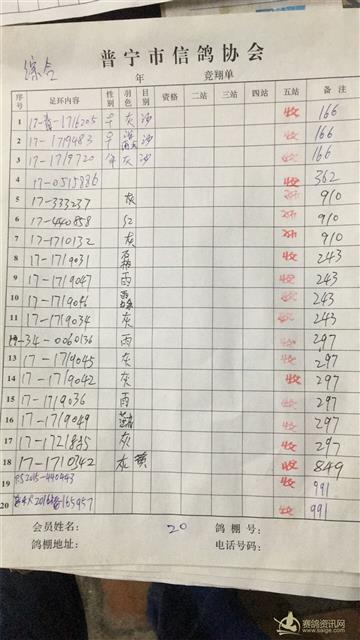 综合
普宁市信鸽协会
年 竞翔单
序号 足环内容 性别 羽色 目别 资格 二站 三站 四站 五站 备注
1 17-普-1716205 灰 沙 收 166
2 17-1719483 沙 收 166
3 17-1719720 灰 沙 收 166
4 17-0515886 收 362
5 17-333237 灰 910
6 17-440858 红 910
7 17-1710132 灰 910
8 17-1719031 收 243
9 17-1719047 雨 收 243
10 17-1719056 收 243
11 17-1719034 灰 收 243
12 -34-0060136 雨 收 297
13 17-1719045 灰 收 297
14 17-1719042 灰 收 297
15 17-1719036 雨 收 297
16 17-1719049 收 297
17 17-1721885 灰 收 297
18 17-1710342 灰 黄 收 849
19 2015-440443 收 991
20 2016 165957 收 991
会员姓名: 20 鸽棚号:
鸽棚地址: 电话号码:
赛鸽资讯网
www.saige.com